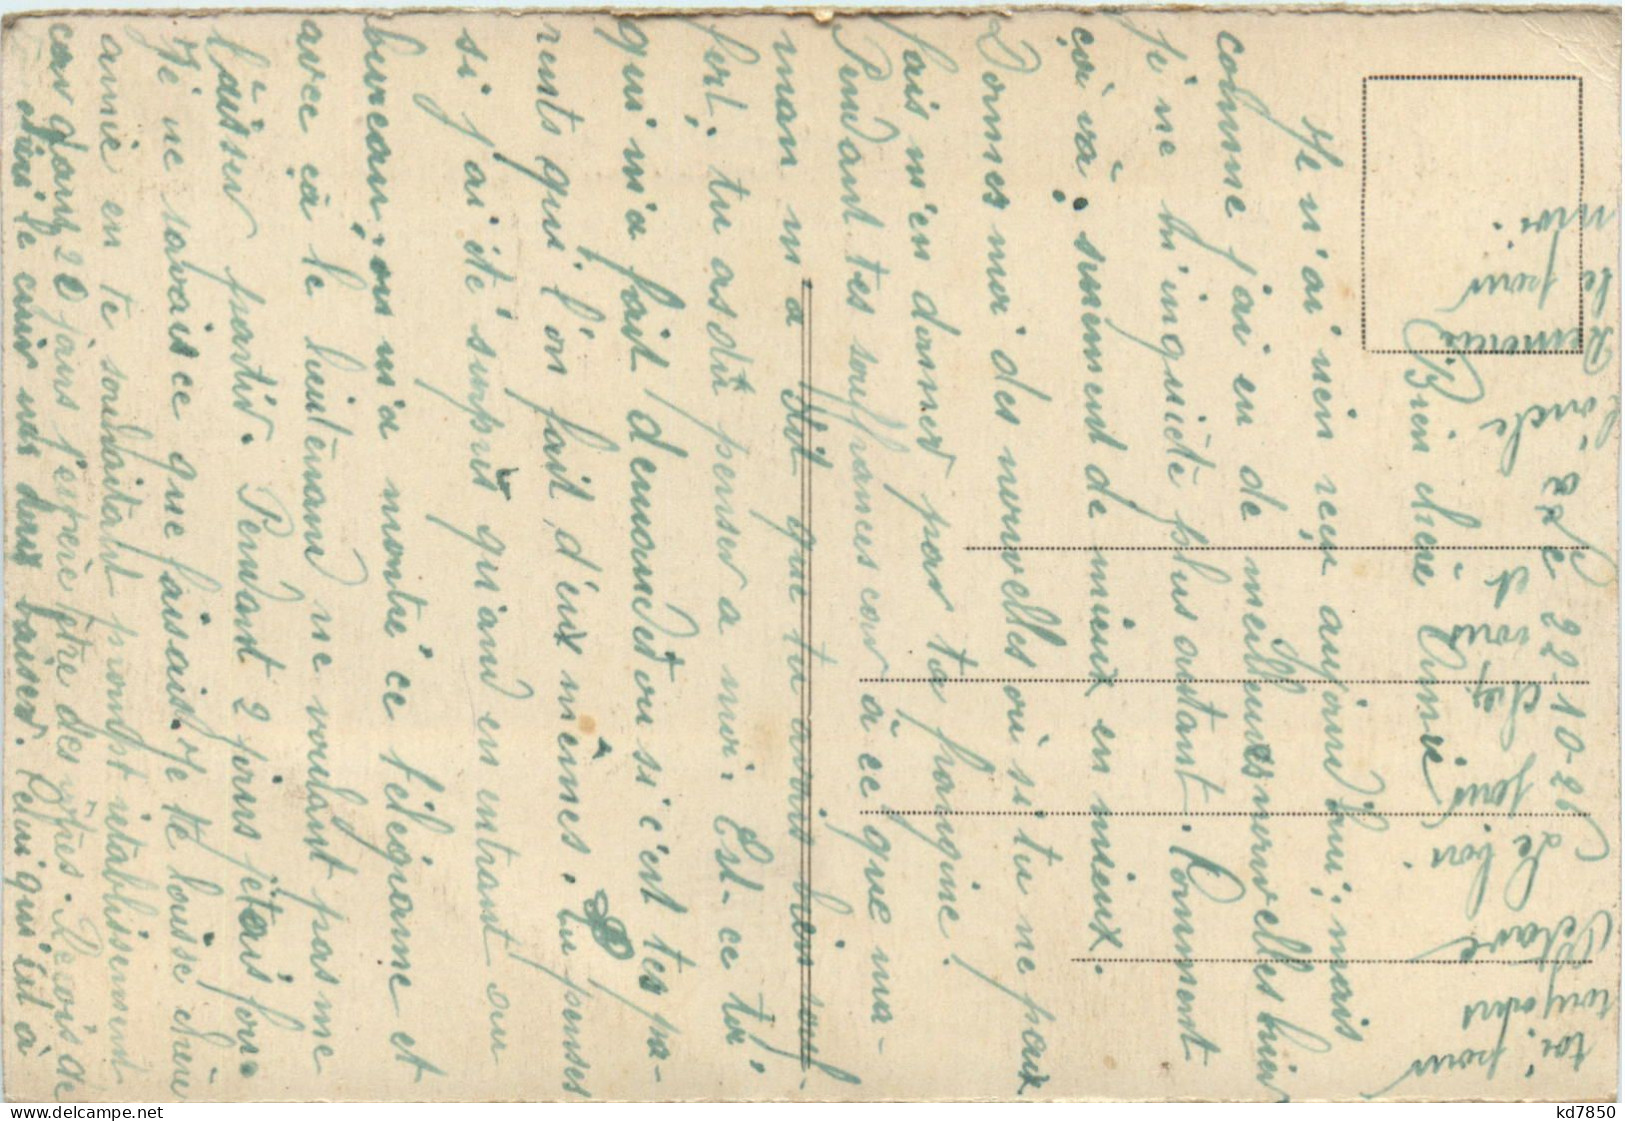 Le 22-10-26
Bien chère Aimée
Je n'ai rien reçu aujourd'hui, mais
comme j'ai eu de meilleures nouvelles hier
je ne m'inquiète plus autant. Comment
çà và, surement de mieux en mieux.
Donnes moi des nouvelles où si tu ne peux
fais m'en donner par ta frangine!
Pendant tes souffrances car à ce que ma-
man m'a dit que tu avois bien souf-
fert, tu as dû penser a moi. Est-ce toi
qui m'a fait demander ou si c'est tes pa-
rents qui l'on fait d'eux mêmes. Tu penses
si j'ai été surpris quand en entrant au
bureau, on m'a montré ce télégramme et
avec çà le lieutenant ne voulant pas me
laisser partir. Pendant 2 jours j'étais fou.
Je ne savais ce que faisais. Je te laisse chère
aimée en te souhaitant prompt rétablissement
car dans 20 jours j'espère être des vôtres. Recois de
mes doux baisers. Celui qui est à
toi pour
toujours
Octave
Le bonjour
chez vous et
à l'oncle.
Remercis
le pour
moi.
kd7850